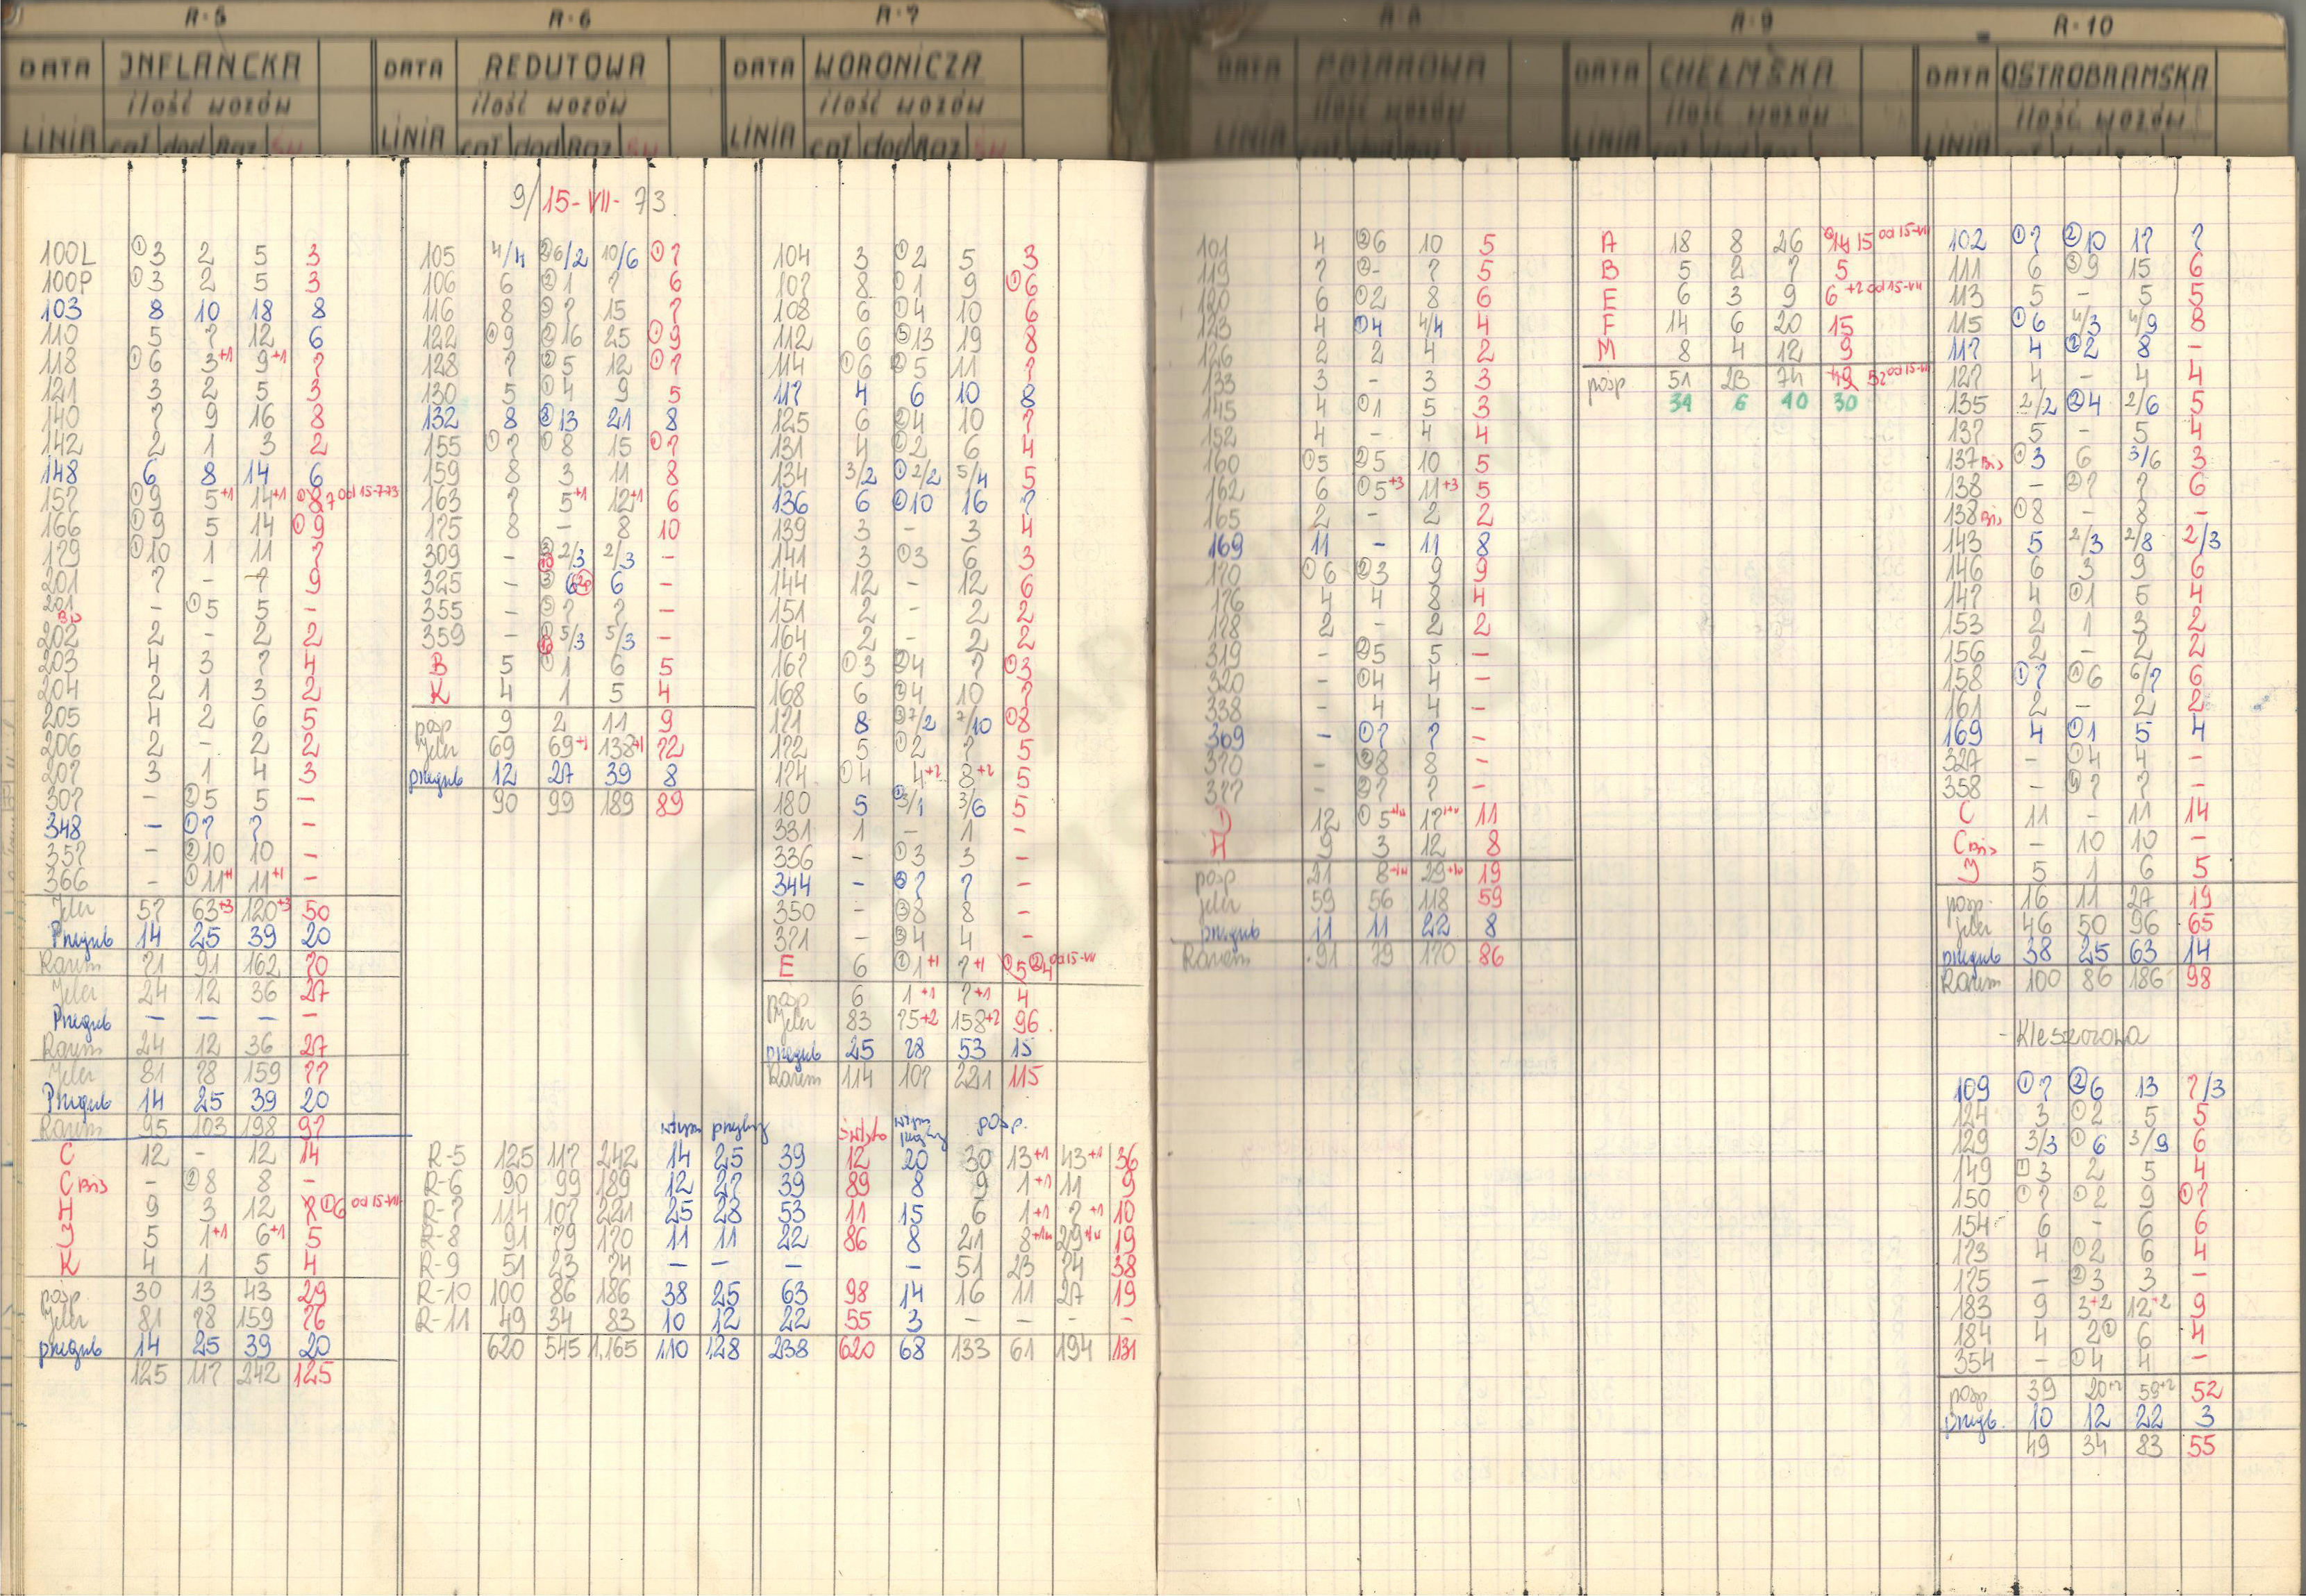 R-5
DATA INFLANCKA
ilość wozów
LINIA cał dod Raz Św
100L ①3 2 5 3
100P ①3 2 5 3
103 8 10 18 8
110 5 7 12 6
118 ①6 3+1 9+1 7
121 3 2 5 3
140 7 9 16 8
142 2 1 3 2
148 6 8 14 6
157 ①9 5+1 14+1 ①8 7 od 15-7-73
166 ①9 5 14 ①9
179 ①10 1 11 7
201 7 - 7 9
201 Bis - ①5 5 -
202 2 - 2 2
203 4 3 7 4
204 2 1 3 2
205 4 2 6 5
206 2 - 2 2
207 3 1 4 3
307 - ②5 5 -
348 - ①7 7 -
357 - ②10 10 -
366 - ①11+1 11+1 -
Jelcz 57 63+3 120+3 50
Przegub 14 25 39 20
Razem 71 91 162 70
Jelcz 24 12 36 27
Przegub - - - -
Razem 24 12 36 27
Jelcz 81 78 159 77
Przegub 14 25 39 20
Razem 95 103 198 97
C 12 - 12 14
C Bis - ②8 8 -
H 9 3 12 8 ①6 od 15-VII
J 5 1+1 6+1 5
K 4 1 5 4
posp. 30 13 43 29
Jelcz 81 78 159 76
przegub 14 25 39 20
125 117 242 125
R-6
DATA REDUTOWA
ilość wozów
LINIA cał dod Raz Św
9/15-VII-73.
105 4/4 ②6/2 10/6 ①7
106 6 ②1 7 6
116 8 ②7 15 7
122 ①9 ②16 25 ①9
128 7 ②5 12 ①7
130 5 ①4 9 5
132 8 ②13 21 8
155 ①7 ①8 15 ①7
159 8 3 11 8
163 7 5+1 12+1 6
175 8 - 8 10
309 - ③2/3 2/3 -
325 - ③6 6 -
355 - ③7 7 -
359 - ①5/3 5/3 -
B 5 ①1 6 5
K 4 1 5 4
posp 9 2 11 9
Jelcz 69 69+1 138+1 72
przegub 12 27 39 8
90 99 189 89
R-7
DATA WORONICZA
ilość wozów
LINIA cał dod Raz Św
104 3 ①2 5 3
107 8 ①1 9 ①6
108 6 ①4 10 6
112 6 ⑤13 19 8
114 ①6 ②5 11 7
117 4 6 10 8
125 6 ②4 10 7
131 4 ②2 6 4
134 3/2 ①2/2 5/4 5
136 6 ①10 16 7
139 3 - 3 4
141 3 ①3 6 3
144 12 - 12 6
151 2 - 2 2
164 2 - 2 2
167 ①3 ②4 7 ①3
168 6 ②4 10 7
171 8 ③7/2 7/10 ①8
172 5 ①2 7 5
174 ①4 4+2 8+2 5
180 5 ②3/1 3/6 5
331 1 - 1 -
336 - ①3 3 -
344 - ②7 7 -
350 - ③8 8 -
371 - ③4 4 -
E 6 ②1+1 7+1 ①5 ②4 od 15-VII
posp 6 1+1 7+1 4
Jelcz 83 75+2 158+2 96
przegub 25 28 53 15
Razem 114 107 221 115
posp.
R-5 125 117 242 14 25 39 12 20 30 13+1 43+1 36
R-6 90 99 189 12 27 39 89 8 9 1+1 11 9
R-7 114 107 221 25 28 53 11 15 6 1+1 7+1 10
R-8 91 79 170 11 11 22 86 8 21 8+1w 29+1w 19
R-9 51 23 74 - - - - 51 23 74 38
R-10 100 86 186 38 25 63 98 14 16 11 27 19
R-11 49 34 83 10 12 22 55 3 - - - -
620 545 1,165 110 128 238 620 68 133 61 194 131
R-8
DATA POŻAROWA
ilość wozów
LINIA
101 4 ②6 10 5
119 7 ②- 7 5
120 6 ①2 8 6
123 4 ①4 4/4 4
126 2 2 4 2
133 3 - 3 3
145 4 ①1 5 3
152 4 - 4 4
160 ①5 ②5 10 5
162 6 ①5+3 11+3 5
165 2 - 2 2
169 11 - 11 8
170 ①6 ②3 9 9
176 4 4 8 4
178 2 - 2 2
319 - ②5 5 -
320 - ①4 4 -
338 - 4 4 -
369 - ①7 7 -
370 - ③8 8 -
377 - ②7 7 -
12 ①5 17 11
H 9 3 12 8
posp 21 8 29 19
Jelcz 59 56 118 59
przegub 11 11 22 8
Razem 91 79 170 86
R-9
DATA CHEŁMSKA
ilość wozów
LINIA cał dod Raz
A 18 8 26 14 15 od 15-VII
B 5 2 7 5
E 6 3 9 6 +2 od 15-VII
F 14 6 20 15
M 8 4 12 9
posp 51 23 74 49 52 od 15-VII
34 6 40 30
R-10
DATA OSTROBRAMSKA
ilość wozów
LINIA
102 ①7 ②10 17 7
111 6 ③9 15 6
113 5 - 5 5
115 ①6 4/3 4/9 8
117 4 ②2 8 -
127 4 - 4 4
135 2/2 ②4 2/6 5
137 5 - 5 4
137 Bis ①3 6 3/6 3
138 - ②7 7 6
138 Bis ①8 - 8 -
143 5 2/3 2/8 2/3
146 6 3 9 6
147 4 ①1 5 4
153 2 1 3 2
156 2 - 2 2
158 ①7 ①6 6/7 6
161 2 - 2 2
169 4 ①1 5 4
327 - ①4 4 -
358 - ①7 7 -
C 11 - 11 14
C Bis - 10 10 -
J 5 1 6 5
posp. 16 11 27 19
Jelcz 46 50 96 65
przegub 38 25 63 14
Razem 100 86 186 98
- Kleszczowa
109 ①7 ②6 13 7/3
124 3 ①2 5 5
129 3/3 ①6 3/9 6
149 ①3 2 5 4
150 ①7 ①2 9 ①7
154 6 - 6 6
173 4 ①2 6 4
175 - ②3 3 -
183 9 3+2 12+2 9
184 4 2① 6 4
354 - ①4 4 -
posp 39 20+2 59+2 52
przegb. 10 12 22 3
49 34 83 55